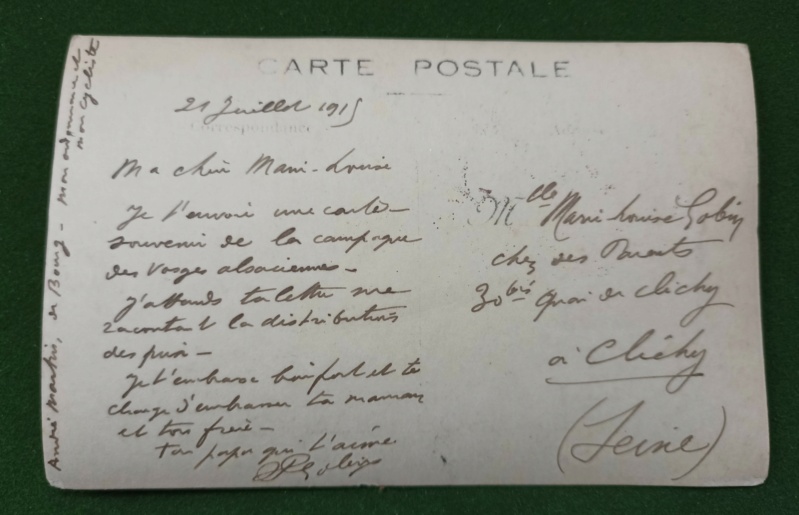 CARTE POSTALE
21 Juillet 1915
Correspondance
Ma chère Marie-Louise
Je t'envoie une carte-
souvenir de la campagne
des Vosges alsaciennes -
J'attends ta lettre me
racontant la distribution
des prix -
Je t'embrasse bien fort et te
charge d'embrasser ta maman
et ton frère -
Ton papa qui t'aime
Mlle Marie Louise Gobin
chez ses Parents
30 bis Quai de Clichy
à Clichy
(Seine)
André Martin, de Bourg - mon ordonnance et
mon cycliste